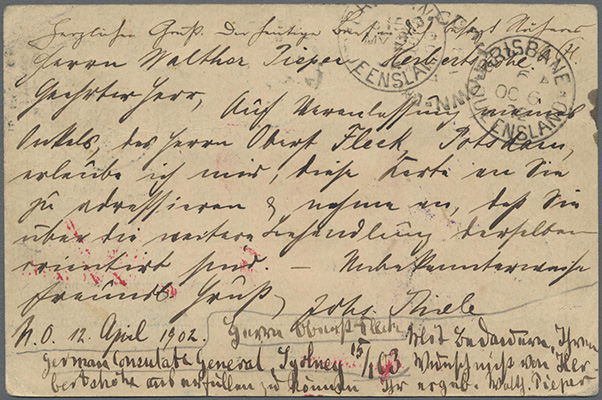 Herzlichen Gruß. Der heutige
Herrn Walther Pieper Herbertshöhe.
Geehrter Herr,
Auf Veranlassung meines
Onkels, des Herrn Oberst Fleck, Potsdam,
erlaube ich mir, diese Karte an Sie
zu adressieren & nehme an, daß Sie
über die weitere Behandlung derselben
orientirt sind. — Unbekannterweise
freundl. Gruß, Johs. Thiele
N.O. 12. April 1902. Herrn Oberst Fleck
Mit Bedauern, Ihren
German Consulate General, Sydney 15/1.03 Wunsch nicht von Her-
bertshöhe aus erfüllen zu können Ihr ergeb. Walth. Pieper
BRISBANE
OC 6
QUEENSLAND
QUEENSLAND